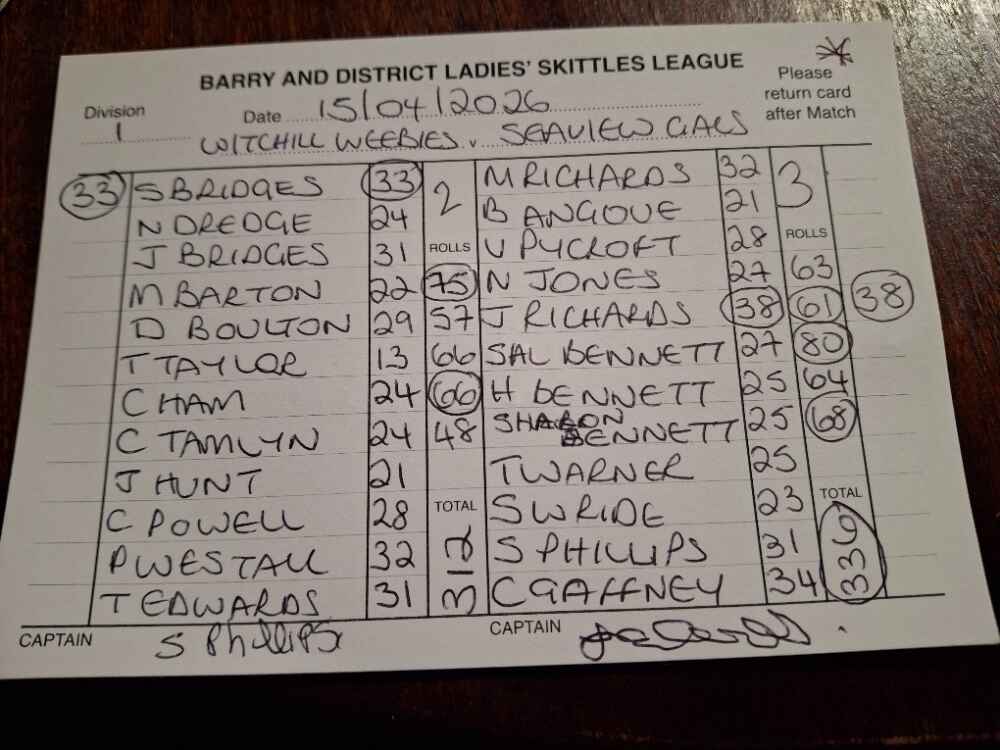 BARRY AND DISTRICT LADIES' SKITTLES LEAGUE
Please
return card
after Match
Division
1
Date 15/04/2026
WITCHILL WEEBIES v SEAVIEW GALS
33 S BRIDGES 33 2 M RICHARDS 32 3
N DREDGE 24 B ANGOVE 21
J BRIDGES 31 ROLLS V PYCROFT 28 ROLLS
M BARTON 22 75 N JONES 27 63
D BOULTON 29 57 J RICHARDS 38 61 38
T TAYLOR 13 66 SAL BENNETT 27 80
C HAM 24 66 H BENNETT 25 64
C TAMLYN 24 48 SHARON BENNETT 25 68
J HUNT 21 T WARNER 25
C POWELL 28 TOTAL S W RIDE 23 TOTAL
P WESTALL 32 312 S PHILLIPS 31 336
T EDWARDS 31 C GAFFNEY 34
CAPTAIN S Phillips CAPTAIN